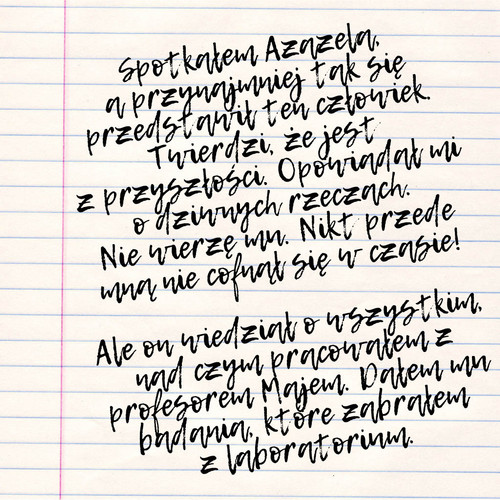 Spotkałem Azazela,
a przynajmniej tak się
przedstawił ten człowiek.
Twierdzi, że jest
z przyszłości. Opowiadał mi
o dziwnych rzeczach.
Nie wierzę mu. Nikt przede
mną nie cofnął się w czasie!
Ale on wiedział o wszystkim,
nad czym pracowałem z
profesorem Majem. Dałem mu
badania, które zabrałem
z laboratorium.